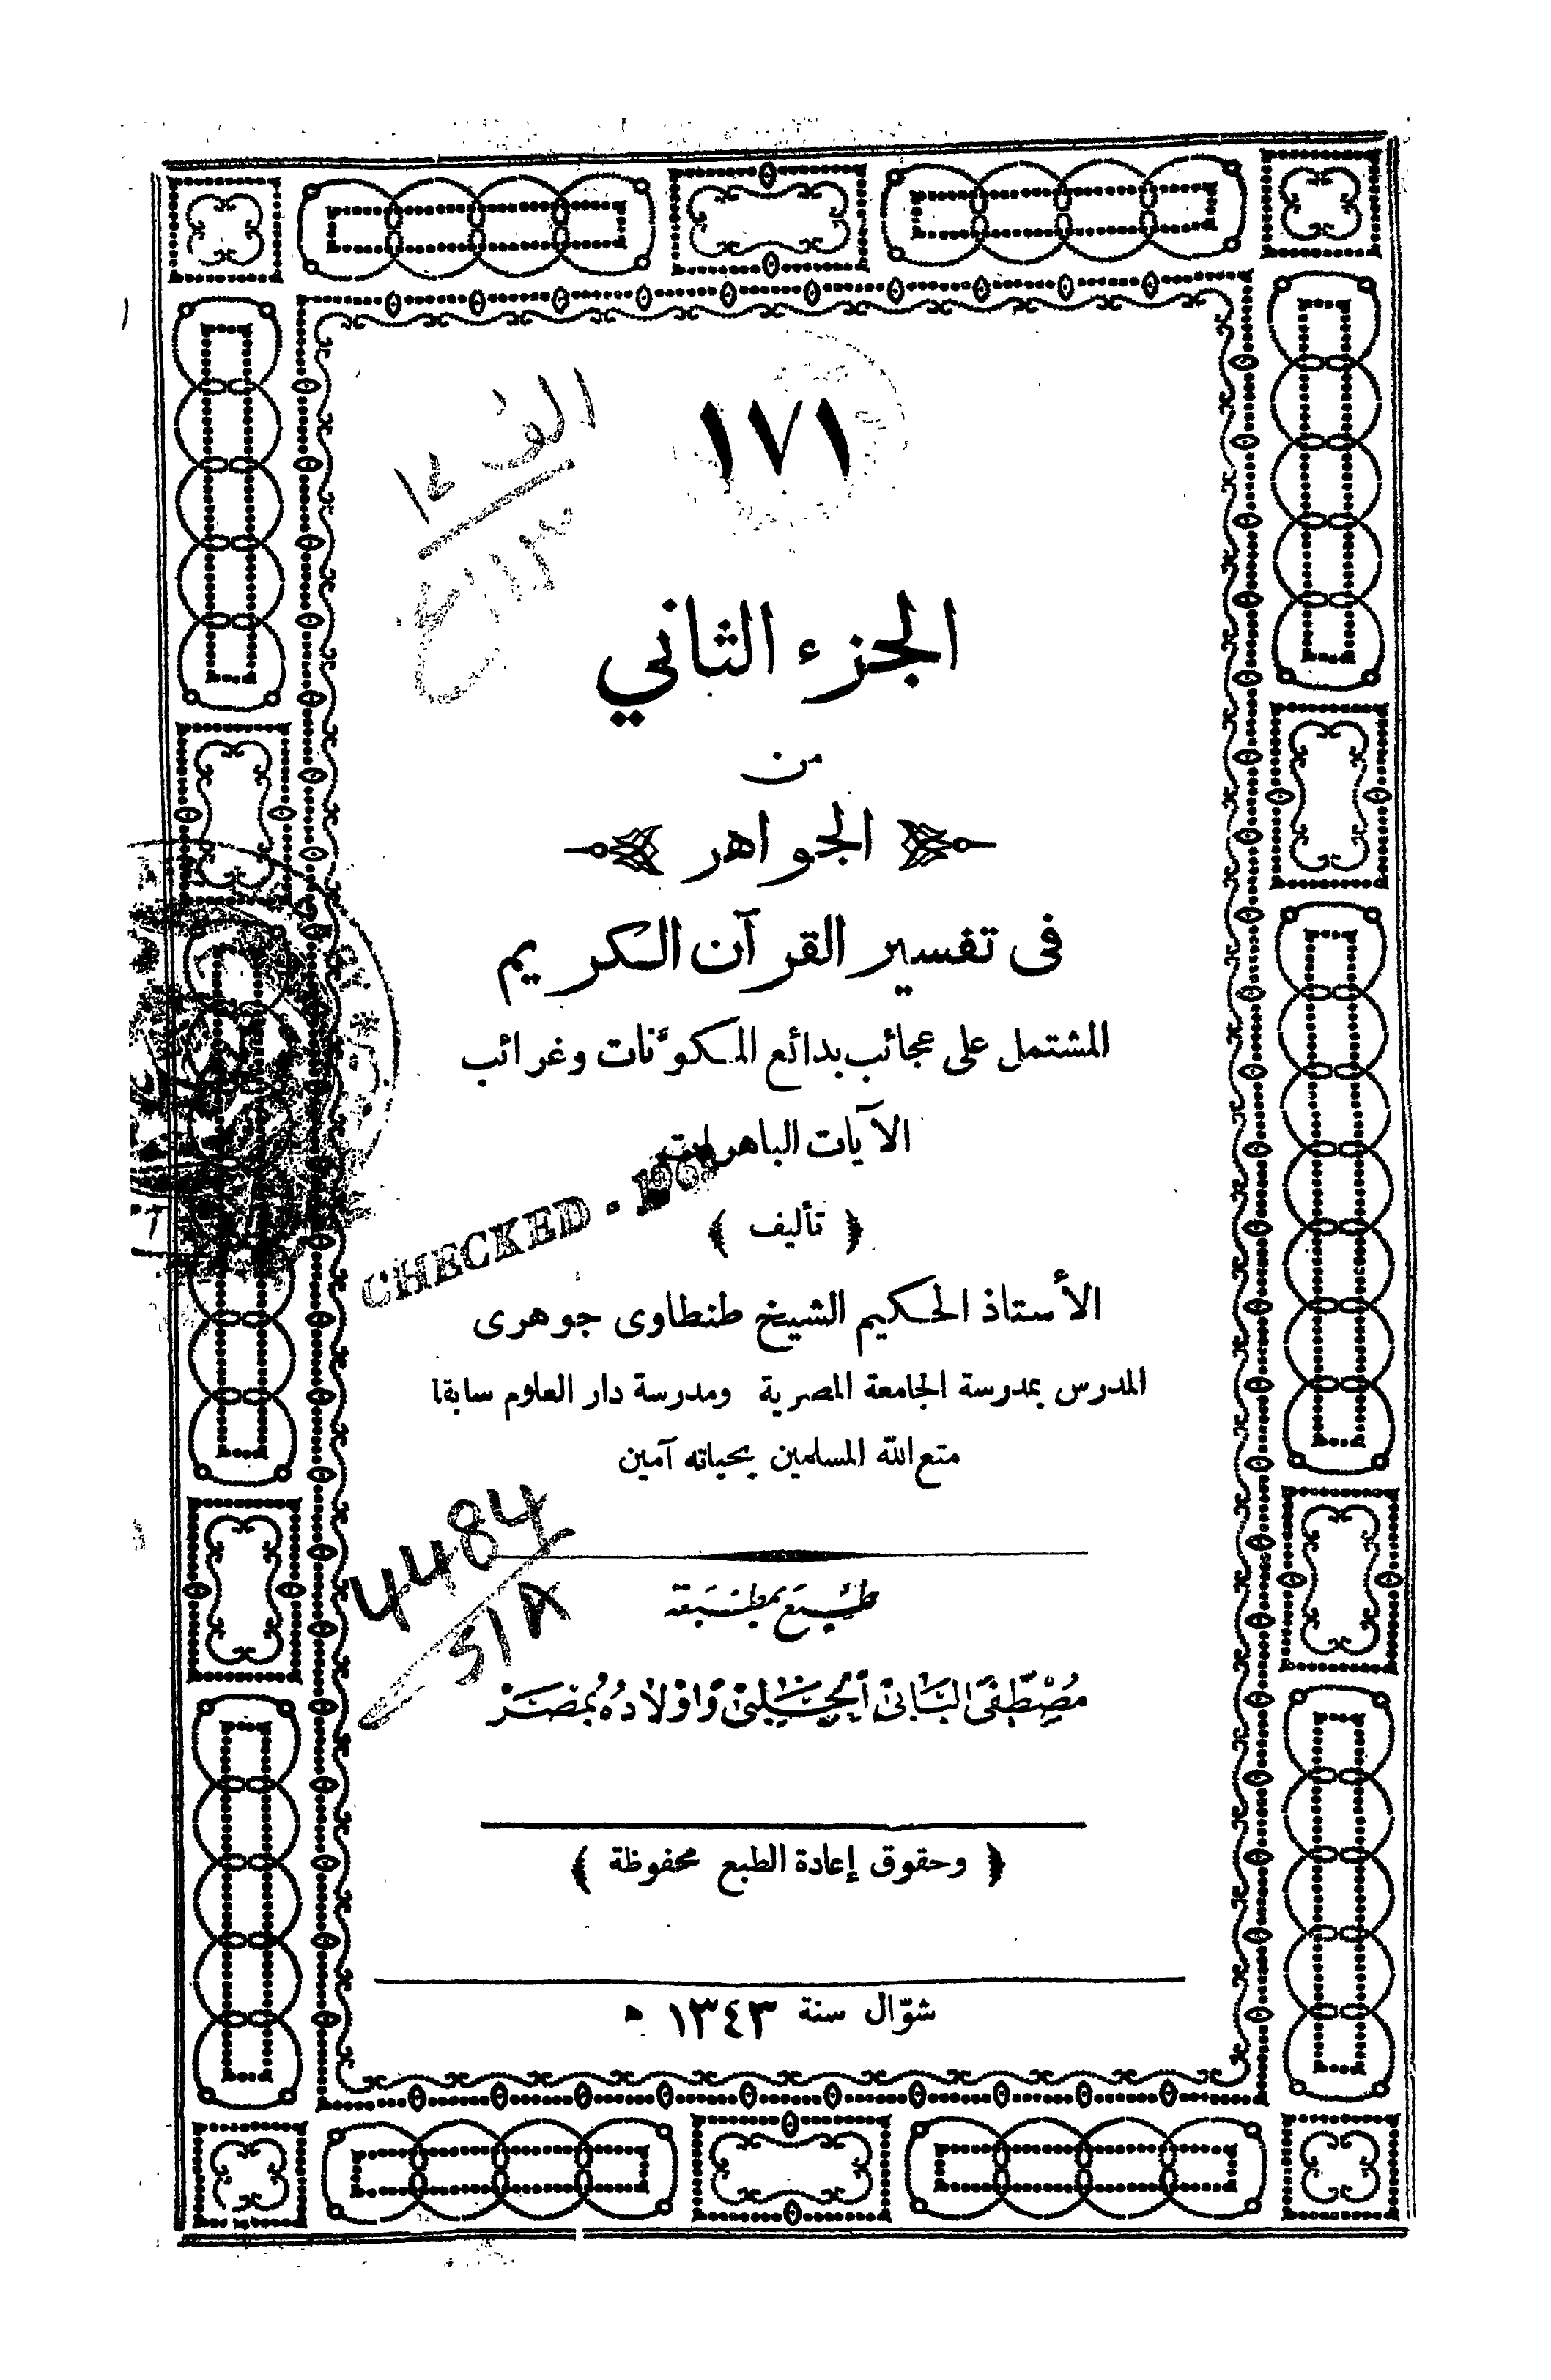 ١٧١
الجزء الثاني
من
الجواهر
فى تفسير القرآن الكريم
المشتمل على عجائب بدائع المكوّنات وغرائب
الآيات الباهرات
CHECKED - 196
﴿ تأليف ﴾
الأستاذ الحكيم الشيخ طنطاوى جوهرى
المدرس بمدرسة الجامعة المصرية ومدرسة دار العلوم سابقا
متع الله المسلمين بحياته آمين
4484
طبع بمطبعة
مصطفى البابى الحلبى وأولاده بمصر
﴿ وحقوق إعادة الطبع محفوظة ﴾
شوّال سنة ١٣٤٣ ه